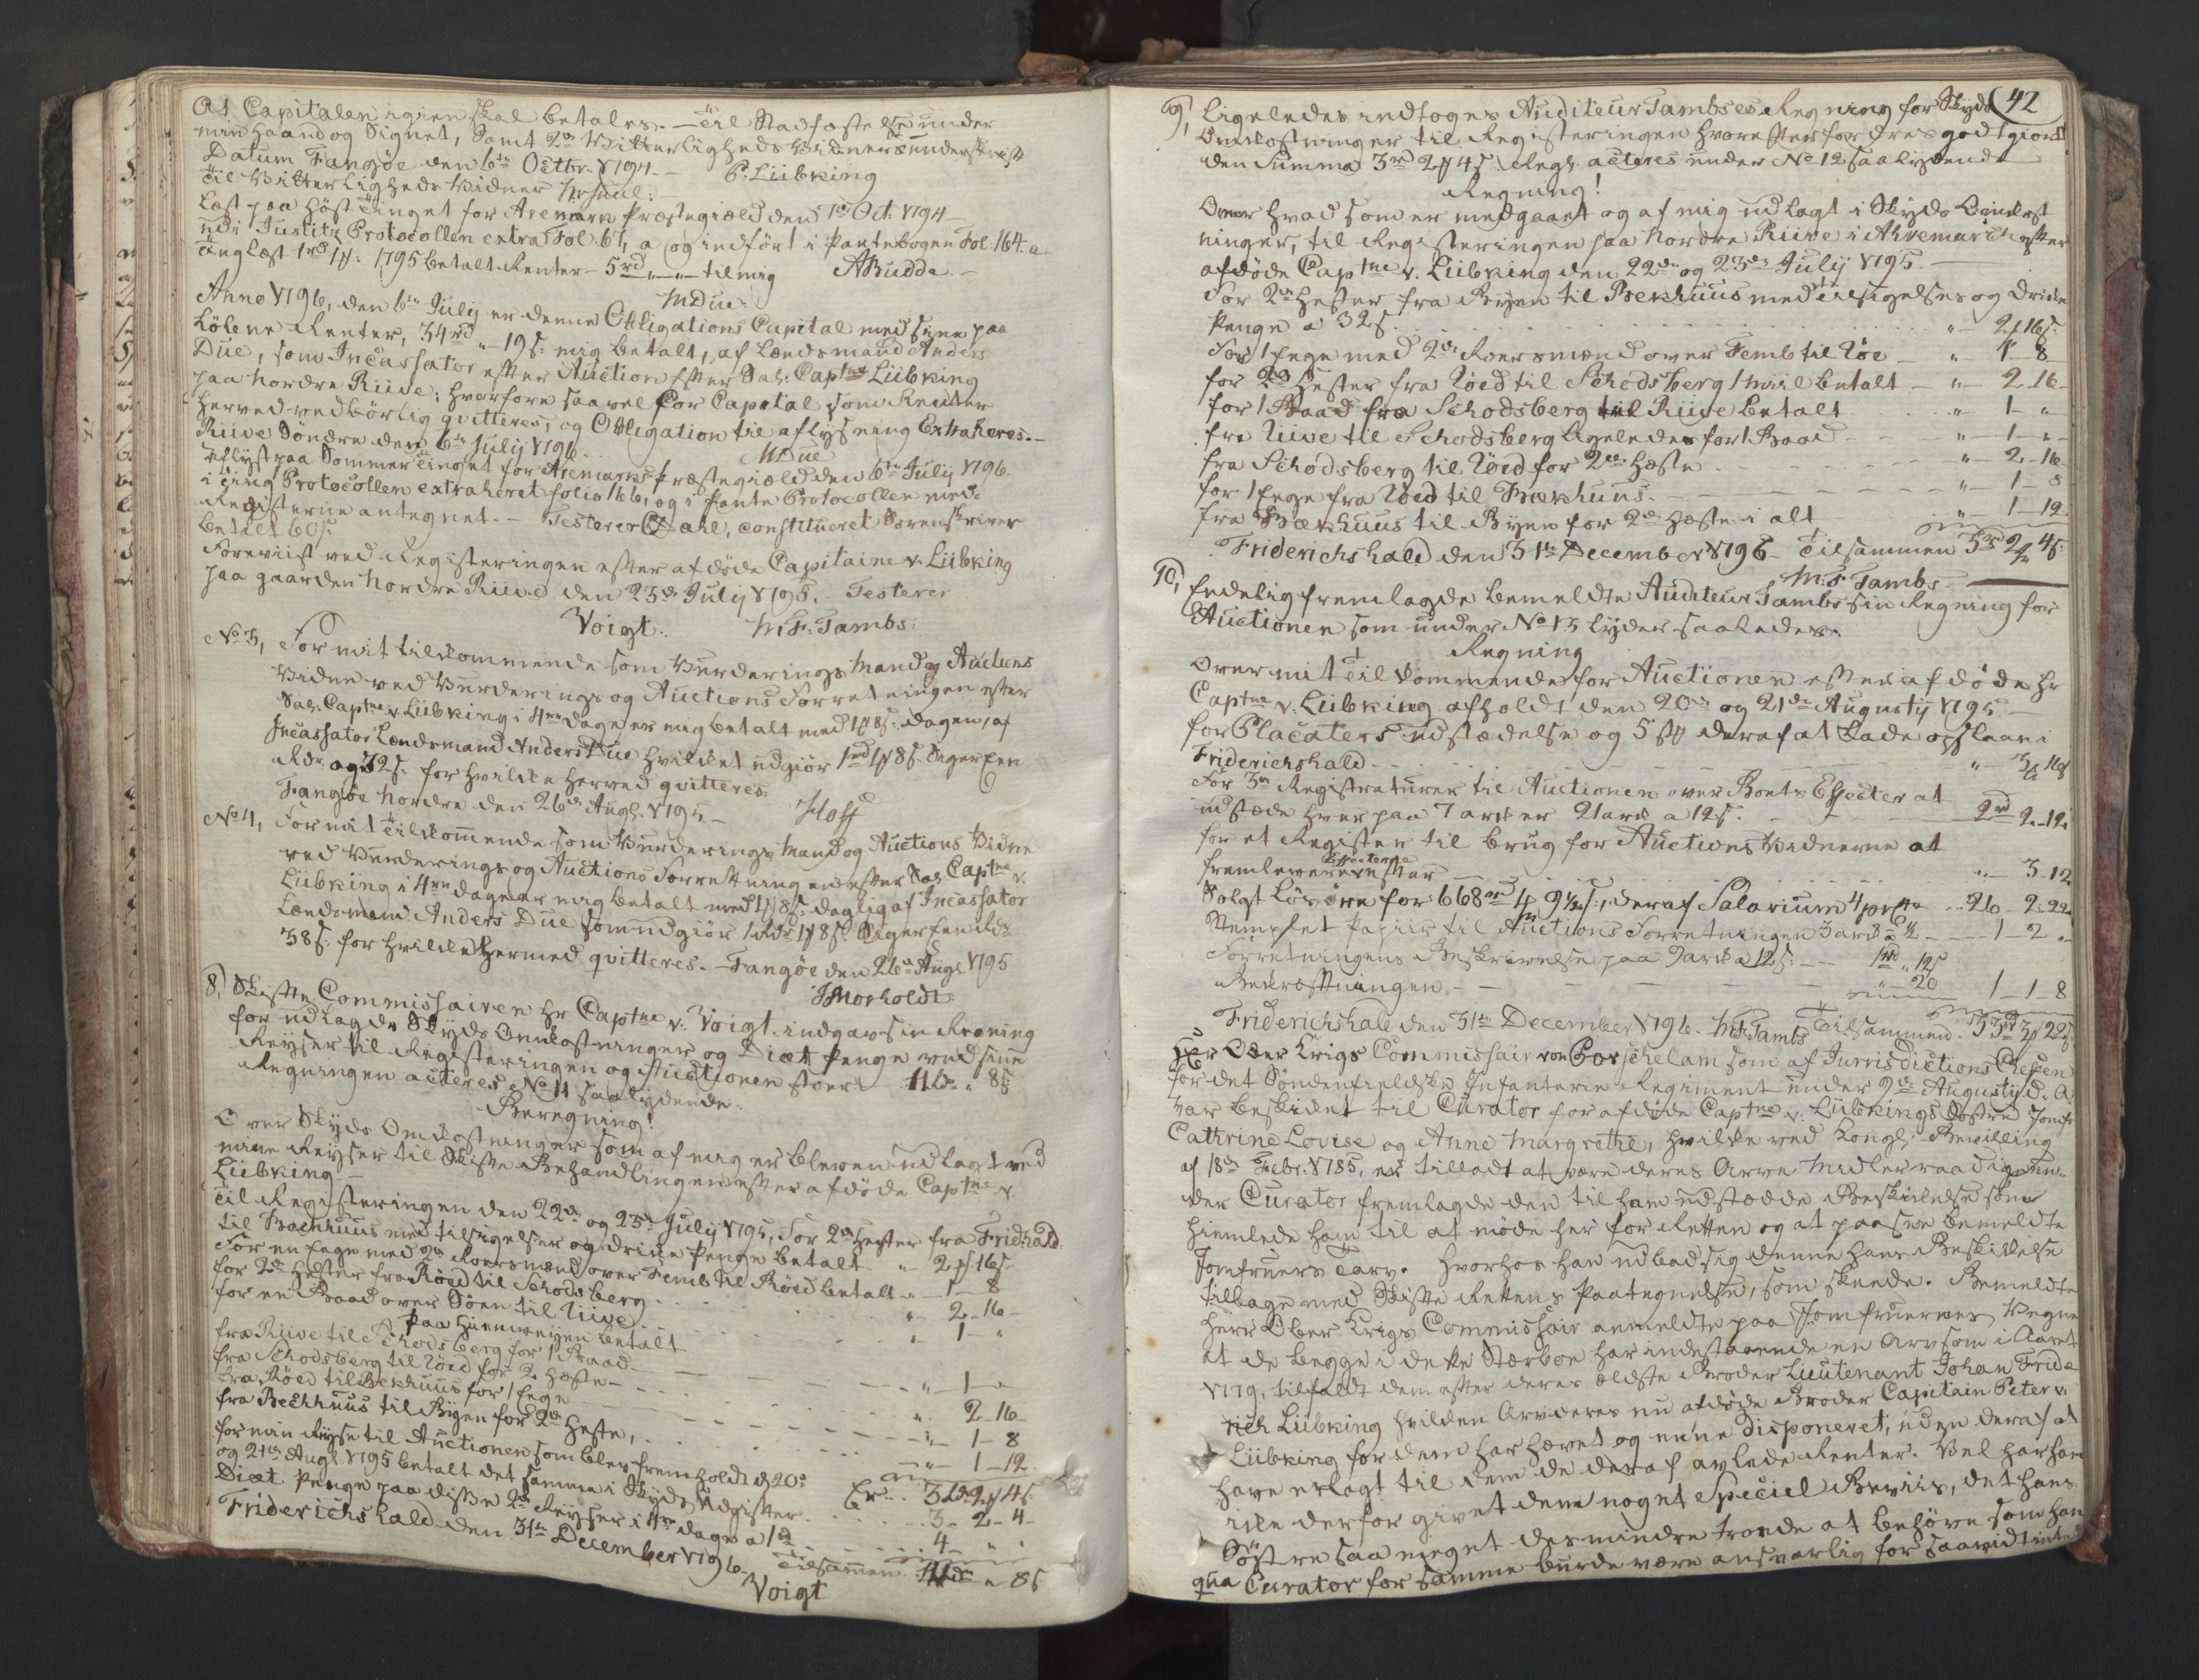 At Capitalen igien skal betales. – Til Stadfæstelse under
min Haand og Signet, Samt 2de Vitterligheds Vidners underskrift
Datum Tangöe den 6te Octbr. 1794. – P. Lübking
Til Vitterligheds Vidner
Læst paa Höst Tinget for Aremark Præstegield den 1te Oct. 1794 –
udi Justitz Protocollen extra Fol: 67, a og indført i Pantebogen Fol: 164. a
Tinglæst 1rd 1 ƒ: 1795 betalt Renter – 5rd „ – „ – til mig ABudde. –
MDue.
Anno 1796, den 6te July er denne Obligations Capital med sine paa
Løbene Renter, 34rd „ – 19 s: mig betalt, af Lændsmand Anders
Due, som Incassator efter Auction efter Sal: Captne Lübking
paa Nordre Riive; hvorfore saavel for Capetal som Renter
herved vedbörlig qvitteres, og Obligation til aflysning Extraheres. –
Riive Söndre den 6te July 1796. MDue
Aflyst paa Sommer Tinget for Aremarks Præstegield den 6te July 1796.
i Ting Protocollen extraheret folio 166, og i Pante Protocollen med
Registerne antegnet. – Testerer Dahl, constitueret Sorenskriver
betalt 60 s.
Foreviist ved Registeringen efter afdöde Capitaine v. Lübking
paa gaarden Nordre Riive den 23de July 1795. – Testerer
Voigt. M.F. Tambs.
No 3, For mit tilkommende som Vurderings Mand og Auctions
Vidne ved Vurderings og Auctions Forretningen efter
Sal. Captne v. Lübking i 4re dage er mig betalt med 1 ƒ 8 s: dagen, af
Incassator Lændsmand Anders Due hvilket udgiör 1rd 1 ƒ 8 s. Siger Een
Rdr og 32 s. for hvilke herved qvitteres.
Tangöe Nordre den 26de Augt. 1795 – Hoff
No 4, For mit Tilkommende som Vurderings Mand og Auctions Vidne
ved Vurderings og Auctions Forretningen efter Sal. Captne v.
Lübking i 4re dage er mig betalt med 1 ƒ 8 s. daglig af Incassator
Lændsmand Anders Due som udgiör 1 Rdr 1 ƒ 8 s. Siger Een Rdr
38 s. for hvilke Hermed qvitteres. – Tangöe den 26de Augt. 1795
8, Skifte Commissairen Hr Captne v. Voigt indgav sin Regning
for udlagde Skyds Omkostninger og Diæt Penge ved sine
Reyser til Registeringen og Auctionen stoer 11 Rdr „ 8 s:
Regningen acteres No 11 saalydende.
Beregning!
Over Skyds Omkostninger som af mig er bleven udlagt ved
mine Reyser til Skifte Behandlingen efter afdöde Captne v.
Lübking. –
Til Registeringen den 22de og 23de July 1795, For 2de Hester fra Fridhald
til Backhuus med tilsigelser og drikke Penge betalt „ 2 ƒ 16 s.
For en Fege med 2de Roersmænd over Femb til Röed betalt „ – 1 – 8
for 2de Hester fra Röed til Schodsberg . . . „ 2 – 16 –
for en Baad over Söen til Riive . . . „ 1 – „
paa Hiemveyen betalt
fra Riive til Schodsberg for 1 Baad – – – „ – 1 – „
fra Schodsberg til Röed for 2 Hæste – – – „ 2 – 16 –
fra Röed til Bekhuus for 1 Fege – – – „ 1 – 8
fra Beckhuus til Byen for 2de Heste, . . . „ 1 – 12
for min Reyse til Auctionen som blev fremholdt d. 20de Er. . 3 Rdr 2 ƒ 4 s.
og 21de Augt. 1795 betalt det samme i Skyds Udgifter . . . 3 – 2 – 4 –
Diæt Penge paa disse 2de Reyser i 4re dage a 1rd . . . 4 – „ „
Friderichshald den 31te December 1796. Tilsammen 11 Rdr „ 8 s
Voigt
42
9, Ligeledes indtoges Auditeur Tambses Regning for Skyds
Omkostninger til Registeringen hvorefter fordres godtgiort
den Summa 3rd 2 ƒ 4 s. Regl. acteres under No 12 saalydende
Regning!
Over hvad som er medgaaet og af mig udlagt i Skyds Omkost
ninger, til Registeringen paa Nordre Riive i Ahremarck efter
afdöde Captne v. Lübking den 22de og 23de July 1795. –
For 2de Hester fra Byen til Bekhuus med Tilsigelses og drikke
Penge a 32 s. . . . „ – 2 ƒ 16 s.
For 1 Fege med 2de Roersmænd over Femb til Röe – „ 1 – 8
for 2de Hester fra Röed til Schodsberg 1 Miil betalt – „ – 2 – 16 –
for 1 Baad fra Schodsberg til Riive betalt . . „ – 1 – „
fra Riive til Schodsberg ligeledes for 1 Baad – – „ – 1 – „ –
fra Schodsberg til Röed for 2de Hæste . . . „ – 2 – 16
for 1 Fege fra Röed til Bækhuus. – – – „ – 1 – 8
fra Bækhuus til Byen for 2de Hæste i alt „ – 1 – 12
Friderichshald den 31te December 1796 – Tilsammen 3rd 2 ƒ 4 s.
M. F. Tambs
10, Endelig fremlagde bemeldte Auditeur Tambs sin Regning for
Auctionen som under No 13 lyder saaledes.
Regning
Over mit Tilkommende for Auctionen efter afdöde Hr
Captne v. Lübking afholdt den 20de og 21de Augusty 1795 –
for Placaters udstædelse og 5 st. deraf at lade opslaae i
Friderichshald . . . „ 3 ƒ 16 s
For 3de Registraturer til Auctionen over Boets Effecter at
udstæde hver paa 7 ark er 21 ark a 12 s. . . . 2rd 2 – 12
for et Register til brug for Auctions Vidnerne at
fremlevere Effecterne efter . . . „ – 3 – 12
Solgt Lösöre for 668rd 1 ƒ 9½ s:, deraf Salarium 4 pr Ct . . 26 – 2 – 22
Stemplet Papiir til Auctions Forretningen 3 ark a ½ – – – 1 – 2 „ –
Forretningens Beskrivelse paa 9 ark a 12 s. – – 1rd „ 12 s
Bekræftningen – – – „ – 20 1 – 1 – 8
Friderichshald den 31te December 1796. M.F. Tambs Tilsammen 33rd 3 ƒ 22 s
Herr Ober Krigs Commissair von som af Jurisdictions Cheffen
for det Söndenfieldske Infanterie Regiment under 9de Augusty d. A.
var beskicket til Curator for afdöde Captne v. Lübkings Söstre Jomfr
Cathrine Lovise og Anne Margrethe, hvilke ved Kongl: Bevilling
af 18de Febr. 1785, er tilladt at være deres Arve Midler raadige un-
der Curator fremlagde den til ham udstædde Beskikkelse som
hiemlede ham til at møde her for Retten og at paasee bemeldte
Jomfruers Tarv. Hvorhos han udbad sig denne hans Beskikkelse
tilbage med Skifte Rettens Paategnelse, som skeede. Bemeldte
Herr Ober Krigs Commissair anmeldte paa Jomfruernes Vegne
at de begge i dette Stærboe har indestaaende en Arv som i Aaret
1779, tilfaldt dem efter deres ældste Broder Lieutenant Johan Fride
rich Lübking hvilken Arv deres nu afdöde Broder Capitain Peter v.
Lübking for dem har hævet og disponeret, uden deraf at
have erlagt til dem de deraf avlede Renter. Vel har han
ikke derfor givet dem noget Speciel Beviis, det hans
Söstre saa meget desmindre troede at behöve som han
qua Curator for samme burde være ansvarlig for saavidt